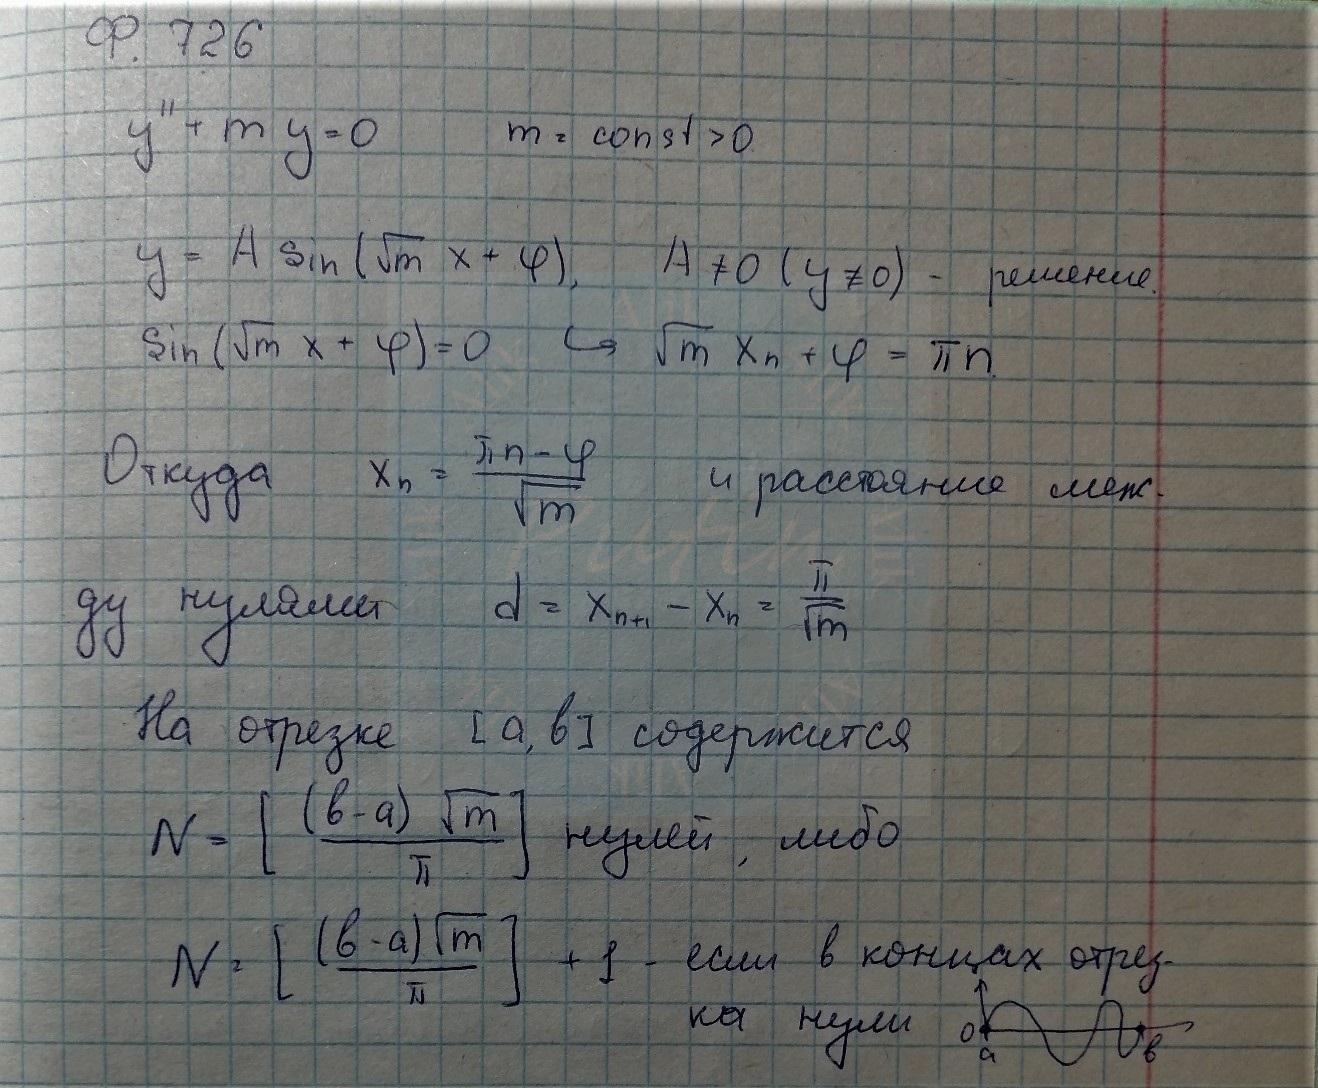 Ф. 726
y'' + m y = 0 m = const > 0
y = A sin(√m x + φ), A ≠ 0 (y ≢ 0) - решение.
sin(√m x + φ) = 0 ↪ √m xₙ + φ = πn.
Откуда xₙ = (πn - φ)/√m и расстояние меж-
ду нулями d = xₙ₊₁ - xₙ = π/√m
На отрезке [a, b] содержится
N = [(b-a)√m/π] нулей, либо
N = [(b-a)√m/π] + 1 - если в концах отрез-
ка нули 0 a b